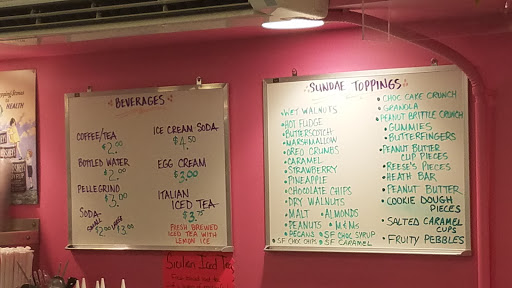 HEALTH
BEVERAGES
COFFEE/TEA
$2.00
BOTTLED WATER
$2.00
PELLEGRINO
$3.00
SODA-
$2.00 $3.00
ICE CREAM SODA
$4.50
EGG CREAM
$3.00
ITALIAN
ICED TEA
$3.75
FRESH BREWED
ICED TEA WITH
LEMON ICE
Sicilian Iced Tea
SUNDAE TOPPINGS
• WET WALNUTS
• HOT FUDGE
• BUTTERSCOTCH
• MARSHMALLOW
• OREO CRUMBS
• CARAMEL
• STRAWBERRY
• PINEAPPLE
• CHOCOLATE CHIPS
• DRY WALNUTS
• MALT • ALMONDS
• PEANUTS • M&Ms
• PECANS • SF CHOC SYRUP
• SF CHOC CHIPS • SF CARAMEL
• CHOC CAKE CRUNCH
• GRANOLA
• PEANUT BRITTLE CRUNCH
• GUMMIES
• BUTTERFINGERS
• PEANUT BUTTER
CUP PIECES
• REESE'S PIECES
• HEATH BAR
• PEANUT BUTTER
• COOKIE DOUGH
PIECES
• SALTED CARAMEL
CUPS
• FRUITY PEBBLES